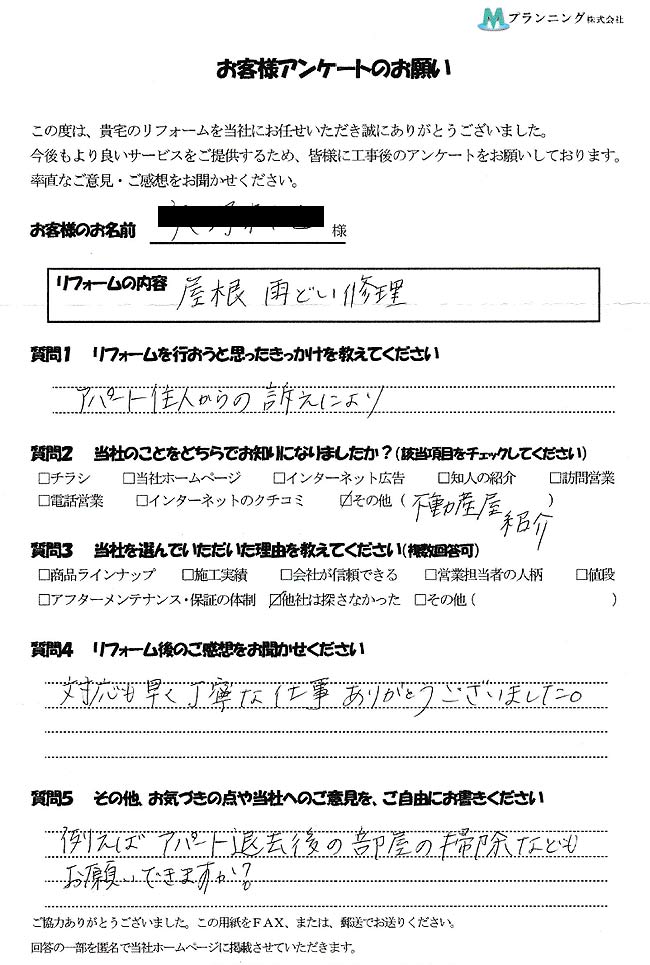 Mプランニング株式会社
お客様アンケートのお願い
この度は、貴宅のリフォームを当社にお任せいただき誠にありがとうございました。
今後もより良いサービスをご提供するため、皆様に工事後のアンケートをお願いしております。
率直なご意見・ご感想をお聞かせください。
お客様のお名前 様
リフォームの内容 屋根 雨どい修理
質問1 リフォームを行おうと思ったきっかけを教えてください
アパート住人からの訴えにより
質問2 当社のことをどちらでお知りになりましたか?(該当項目をチェックしてください)
□チラシ □当社ホームページ □インターネット広告 □知人の紹介 □訪問営業
□電話営業 □インターネットのクチコミ ☑その他（不動産屋）
紹介
質問3 当社を選んでいただいた理由を教えてください(複数回答可)
□商品ラインナップ □施工実績 □会社が信頼できる □営業担当者の人柄 □値段
□アフターメンテナンス・保証の体制 ☑他社は探さなかった □その他（ ）
質問4 リフォーム後のご感想をお聞かせください
対応も早く丁寧な仕事ありがとうございました。
質問5 その他、お気づきの点や当社へのご意見を、ご自由にお書きください
例えばアパート退去後の部屋の掃除なども
お願いできますか?
ご協力ありがとうございました。この用紙をFAX、または、郵送でお送りください。
回答の一部を匿名で当社ホームページに掲載させていただきます。